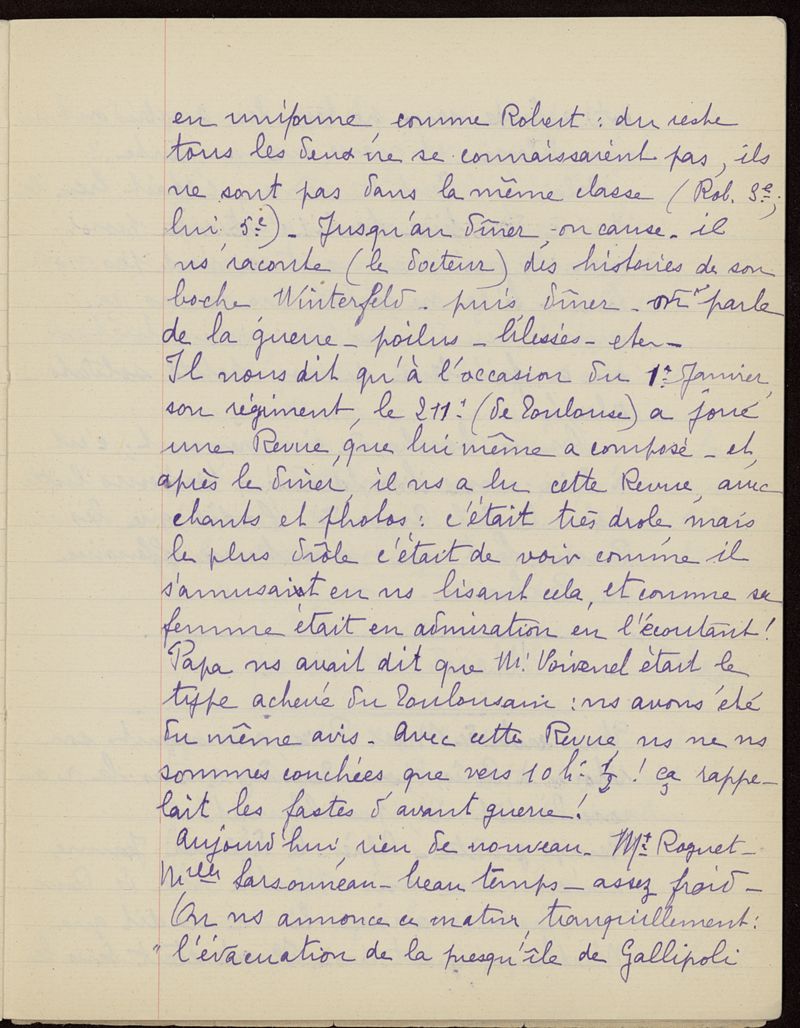 en uniforme, comme Robert : du reste
tous les deux ne se connaissaient pas, ils
ne sont pas dans la même classe (Rob. 3e,
lui 5e) – Jusqu'au dîner, on cause – il
ns raconte (le docteur) des histoires de son
boche Winterfeld – puis dîner – on parle
de la guerre – poilus – blessés – etc –
Il nous dit qu'à l'occasion du 1er Janvier,
son régiment, le 211e (de Toulouse) a joué
une Revue, que lui même a composé – et,
après le dîner, il ns a lu cette Revue, avec
chants et photos : c'était très drole, mais
le plus drôle c'était de voir comme il
s'amusait en ns lisant cela, et comme sa
femme était en admiration en l'écoutant !
Papa ns avait dit que Mr Voivenel était le
type achevé du Toulousain : ns avons été
du même avis – Avec cette Revue, ns ne ns
sommes couchées que vers 10 h 1/2 ! ça rappe-
lait les fastes d'avant guerre !
Aujourd'hui rien de nouveau – Mt Roguet –
Melle Sarsonneau – beau temps – assez froid –
On ns annonce ce matin, tranquillement :
" l'évacuation de la presqu'île de Gallipoli